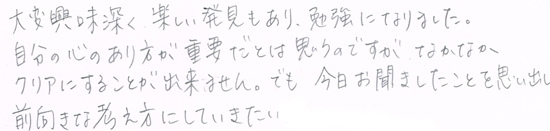 大変興味深く 楽しい発見もあり、勉強になりました。
自分の心のあり方が重要だとは思うのですが なかなか
クリアにすることが出来ません。でも 今日お聞きましたことを思い出し
前向きな考え方にしていきたい